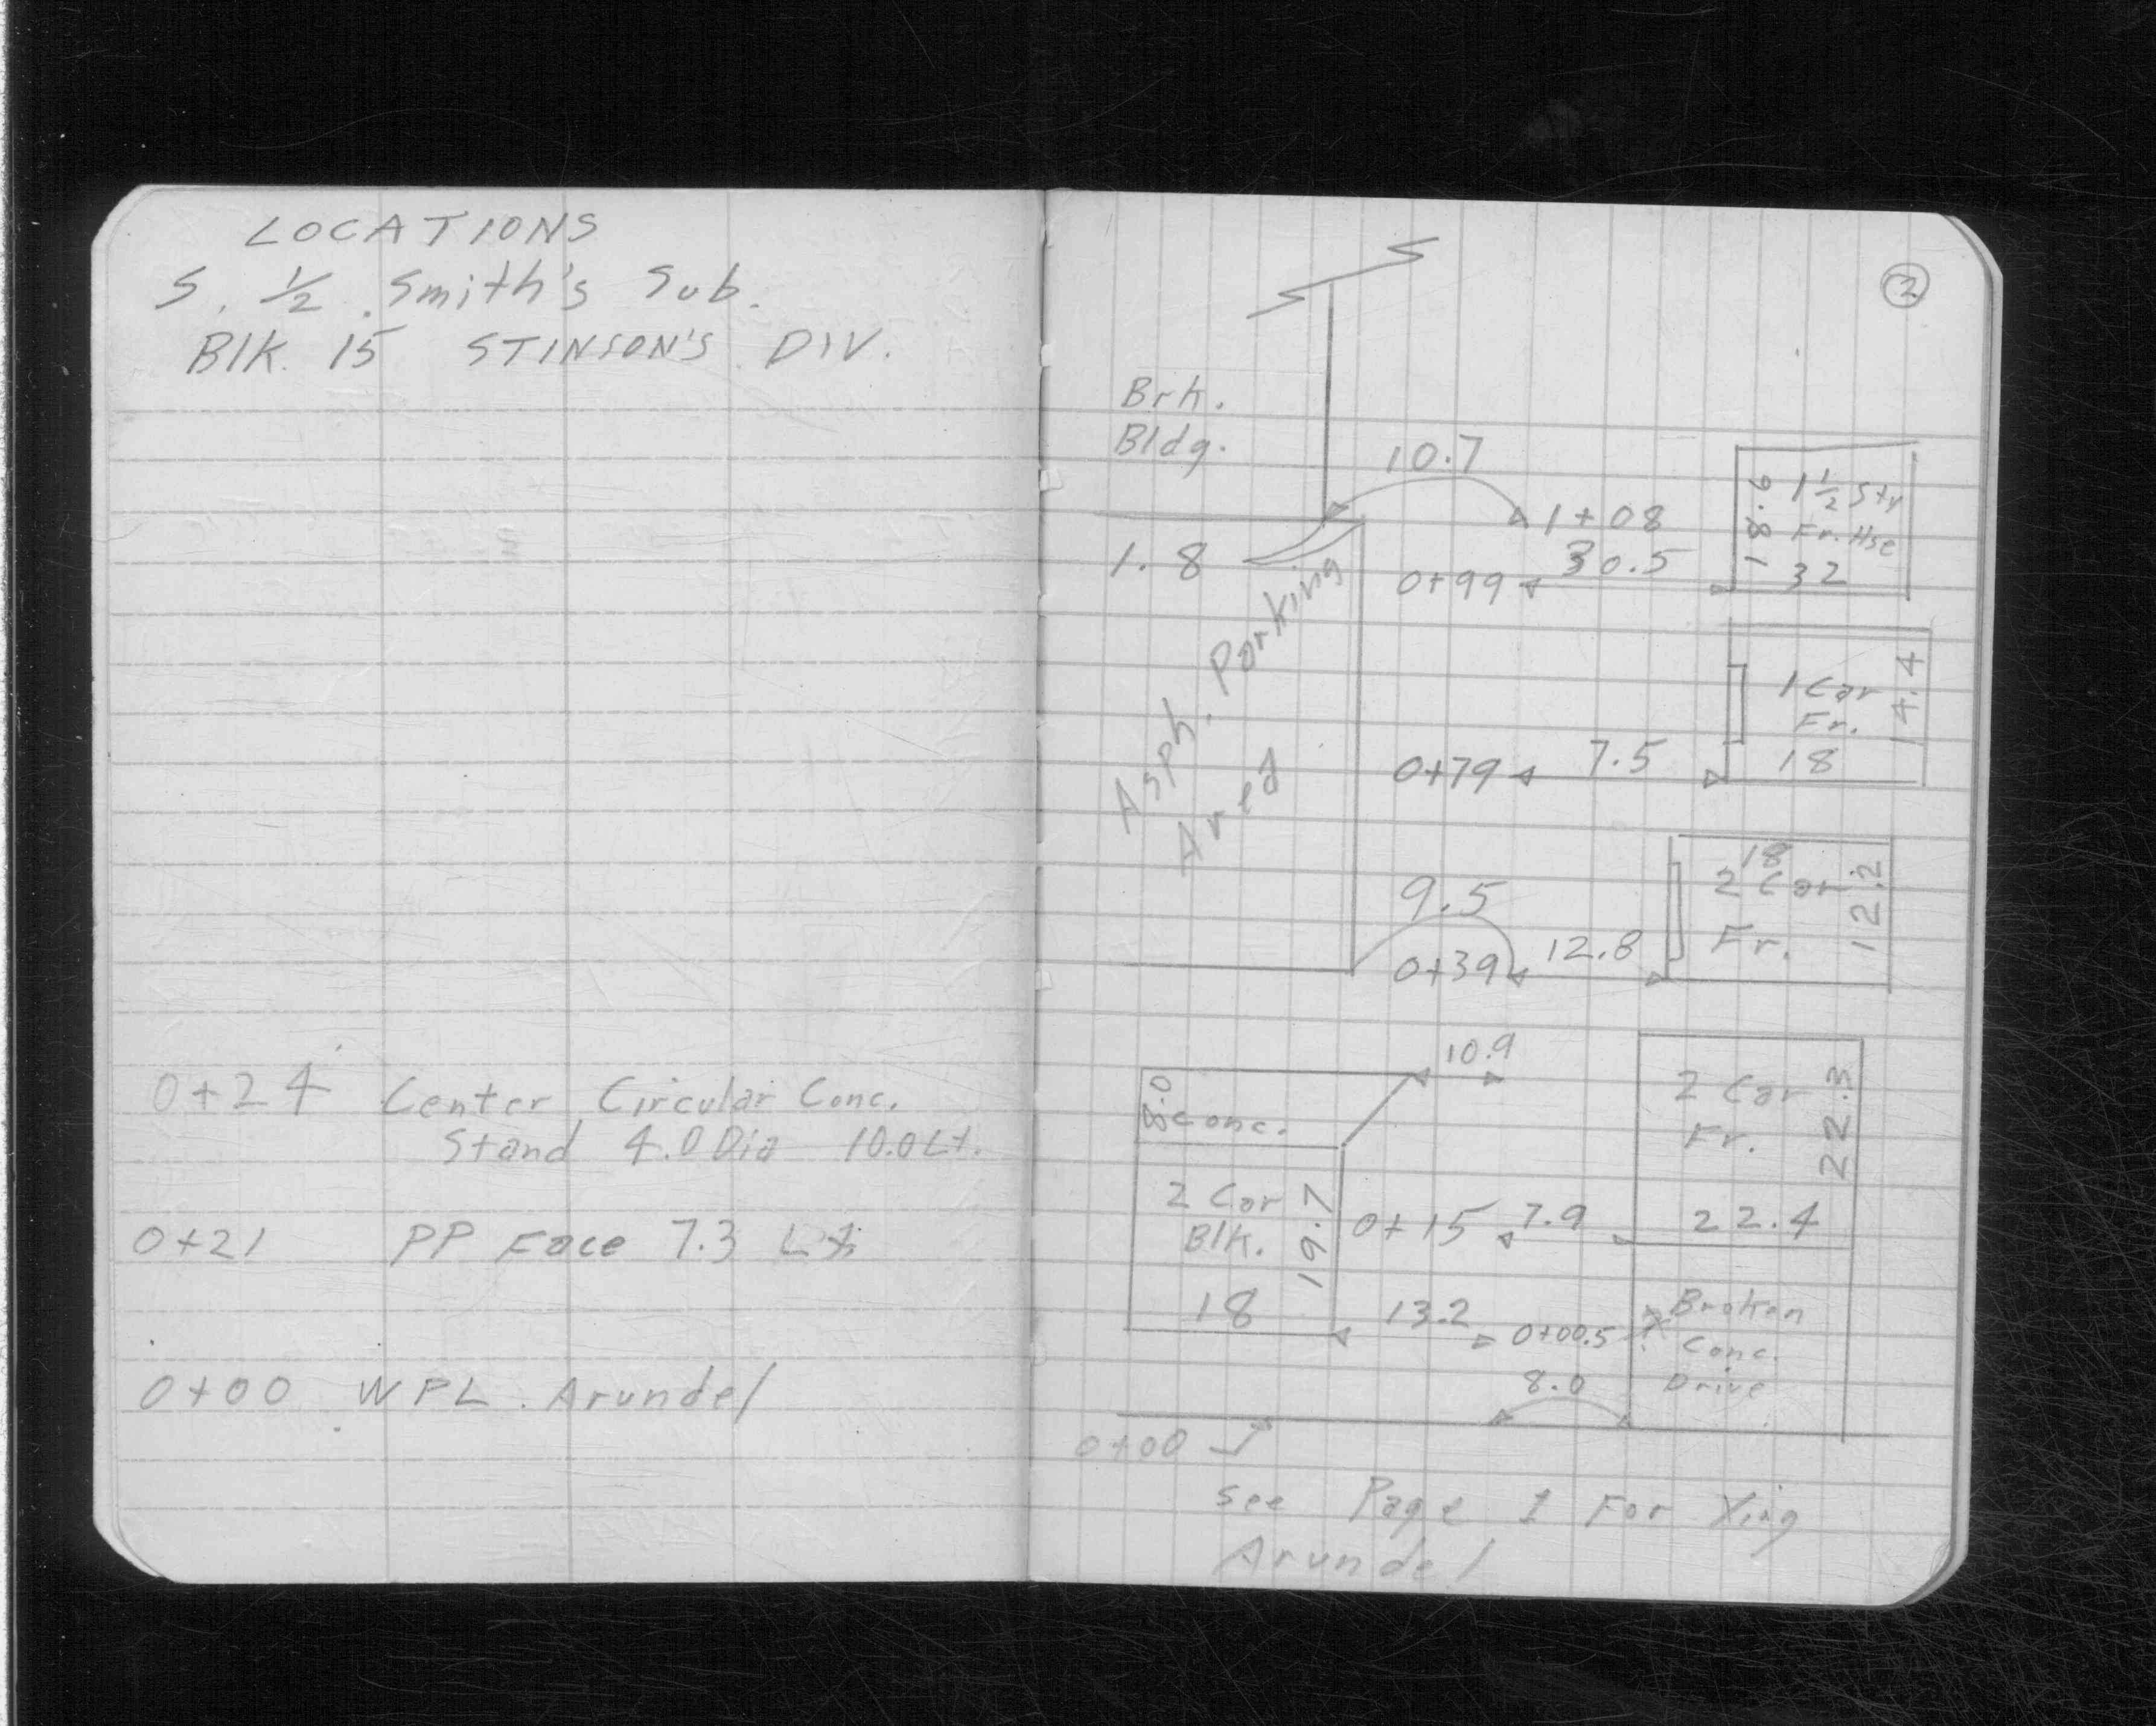 LOCATIONS
S. 1/2 Smith's Sub.
Blk. 15 STINSON'S DIV.
0+24 Center Circular Conc.
Stand 4.0 Dia 10.0 Lt.
0+21 PP Face 7.3 Lt
0+00 WPL. Arundel
2
Brk.
Bldg.
10.7
1+08
1.8
30.5
0+99
18.6
1 1/2 Sty
Fr. Hse
32
Asph. Parking
Area
1 Car
Fr.
18
14.4
0+79
7.5
18
2 Car
Fr.
12.2
9.5
0+39
12.8
10.9
8.0
Conc.
2 Car
Fr.
22.3
22.4
2 Car
Blk.
18
19.7
0+15
7.9
13.2
0+00.5
Broken
Conc.
Drive
8.0
0+00
see Page 1 For Xing
Arundel